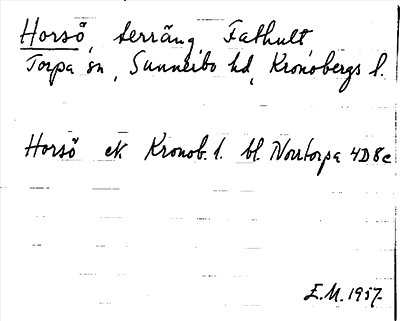 Horsö, terräng Fathult
Torpa sn, Sunnerbo hd, Kronobergs l.
Horsö ek Kronob. l. bl. Norrtorpa 4D8c
E.M. 1957.